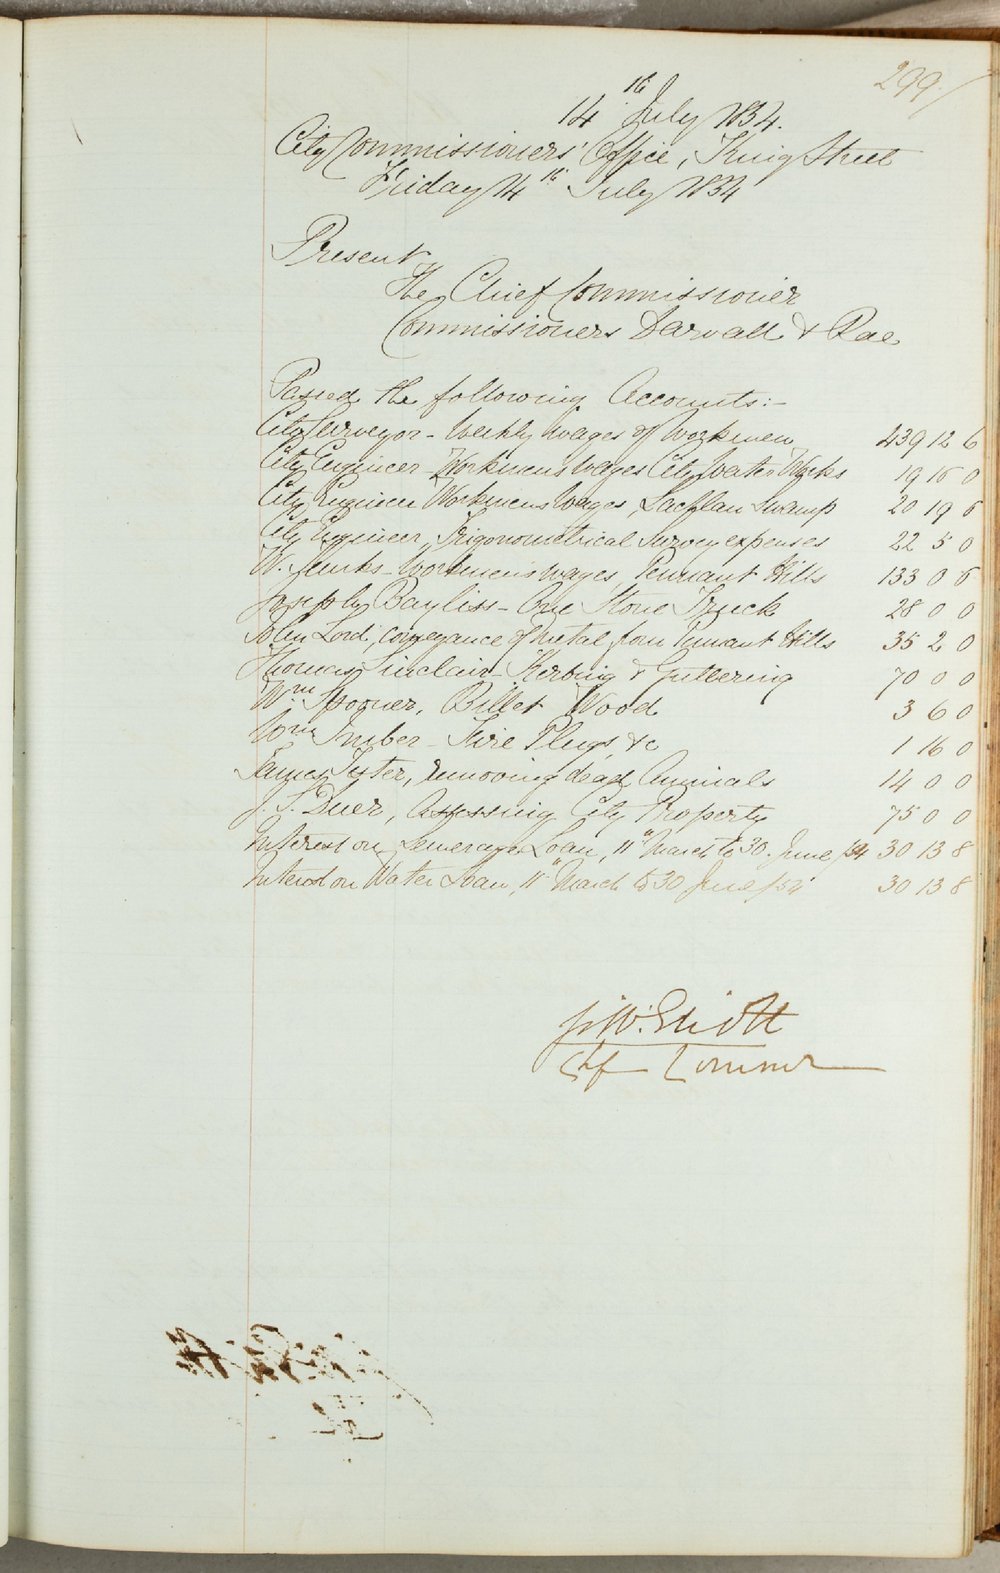 299
14th July 1854.
City Commissioners' Office, King Street
Friday 14th July 1854
Present
The Chief Commissioner
Commissioners Darvall & Rae
Passed the following Accounts:-
City Surveyor - Weekly Wages of Workmen 439 12 6
City Engineer - Workmens Wages City Water Works 19 16 0
City Engineer Workmens Wages, Lachlan Swamp 20 19 6
City Engineer, Trigonometrical Survey expenses 22 5 0
W. Jenks - Workmen's wages, Pennant Hills 133 0 6
Joseph Bayliss - One Stone Truck 28 0 0
John Lord, conveyance of metal from Pennant Hills 35 2 0
Thomas Sinclair - Kerbing & Guttering 70 0 0
Wm Spooner, Billet Wood 3 6 0
Wm Imber - Fire Plugs &c 1 16 0
James Tester, removing dead Animals 14 0 0
J. S. Duer, Assessing City Property 75 0 0
Interest on Sewerage Loan, 11" March to 30. June /54 30 13 8
Interest on Water Loan, 11" March to 30 June /54 30 13 8
G. W. Eliott
Chf Commr